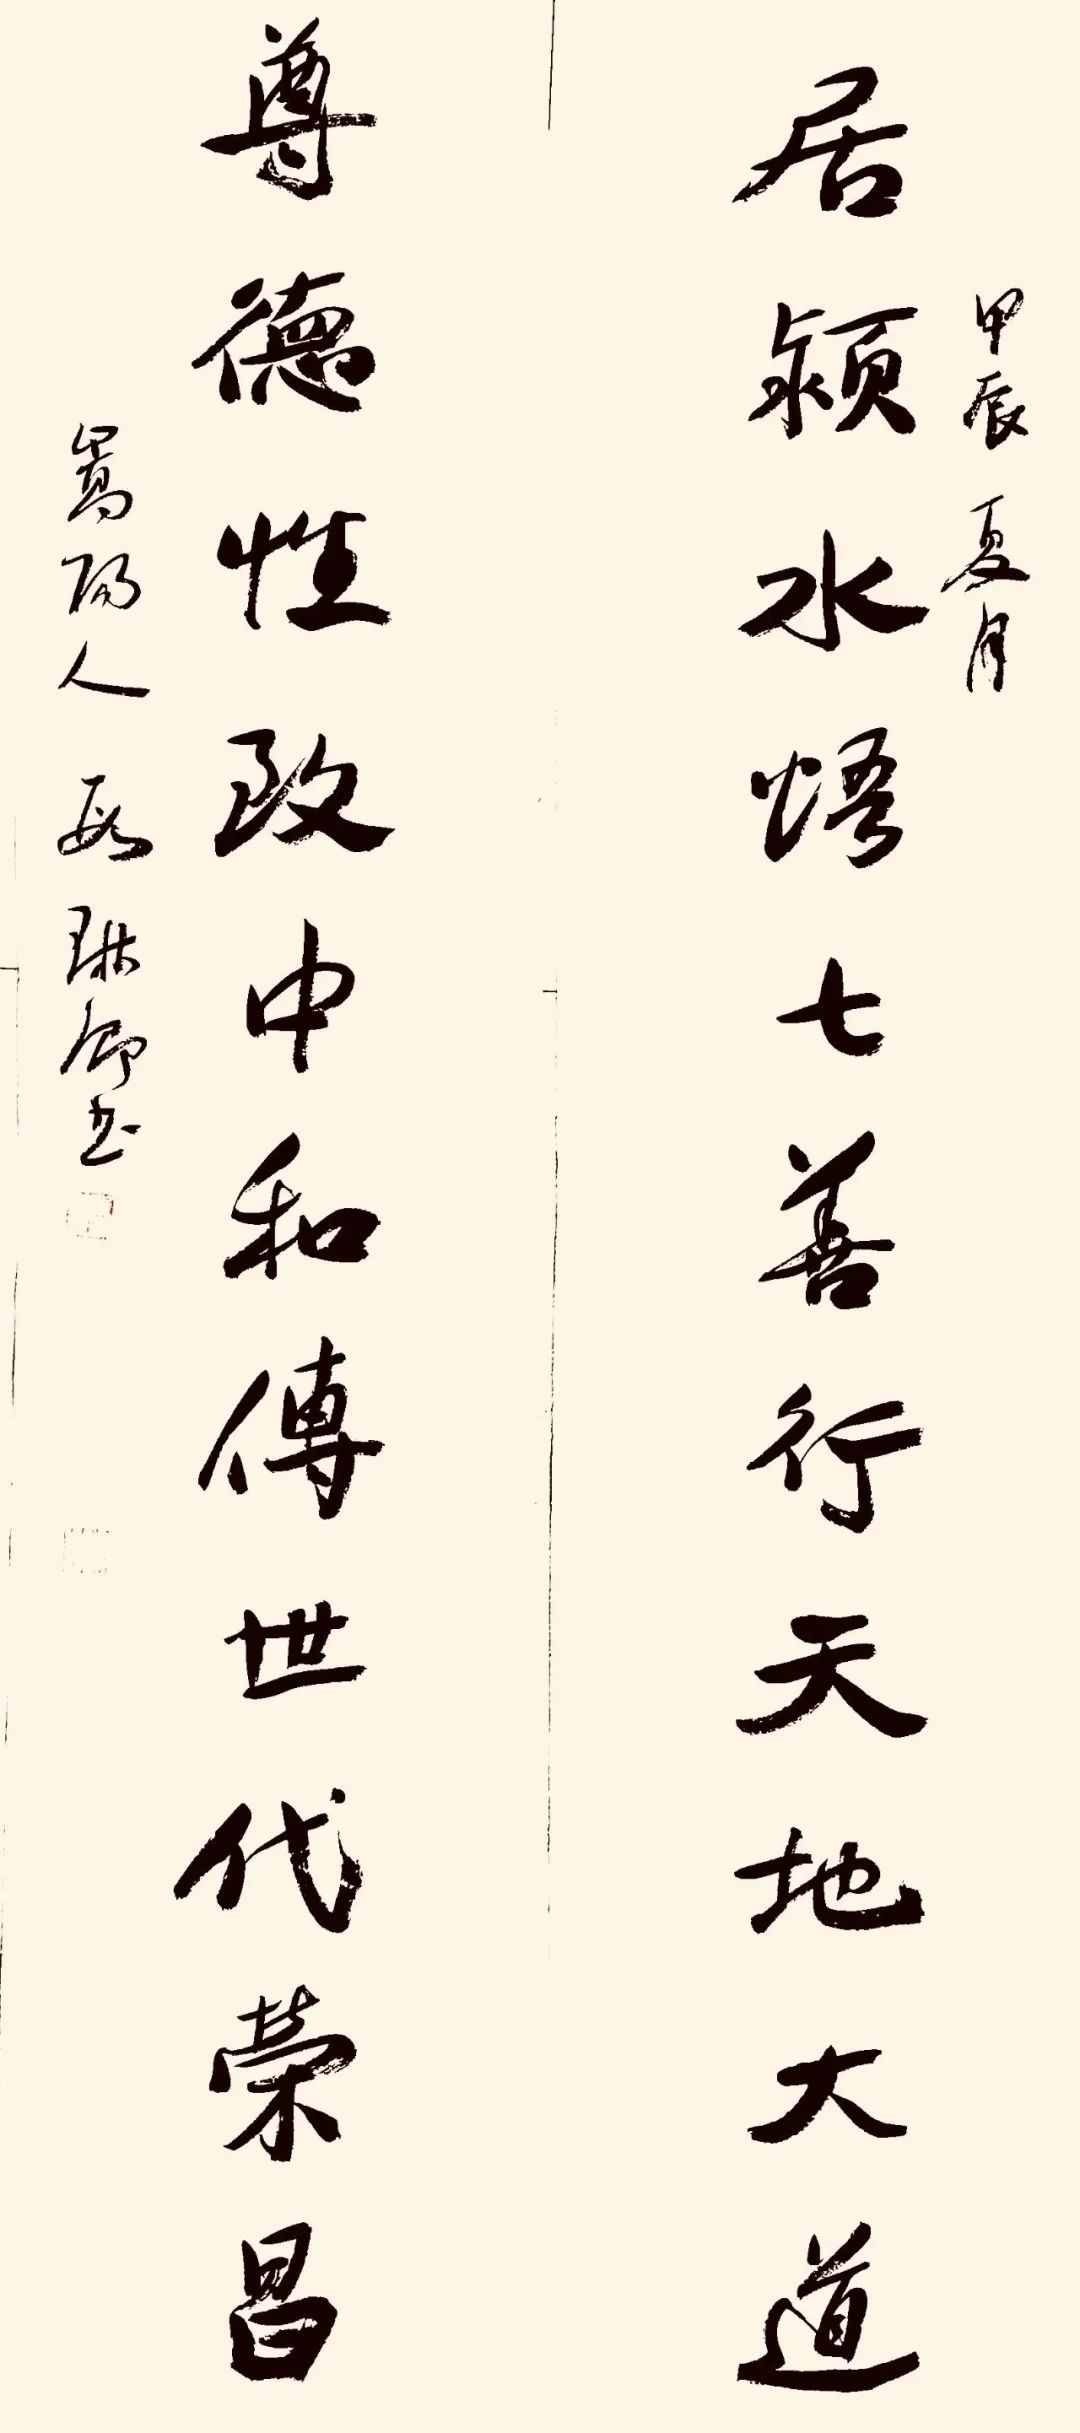 甲辰夏月
居潁水悟七善行天地大道
尊德性致中和傳世代榮昌
嵩陽人段琳卿书